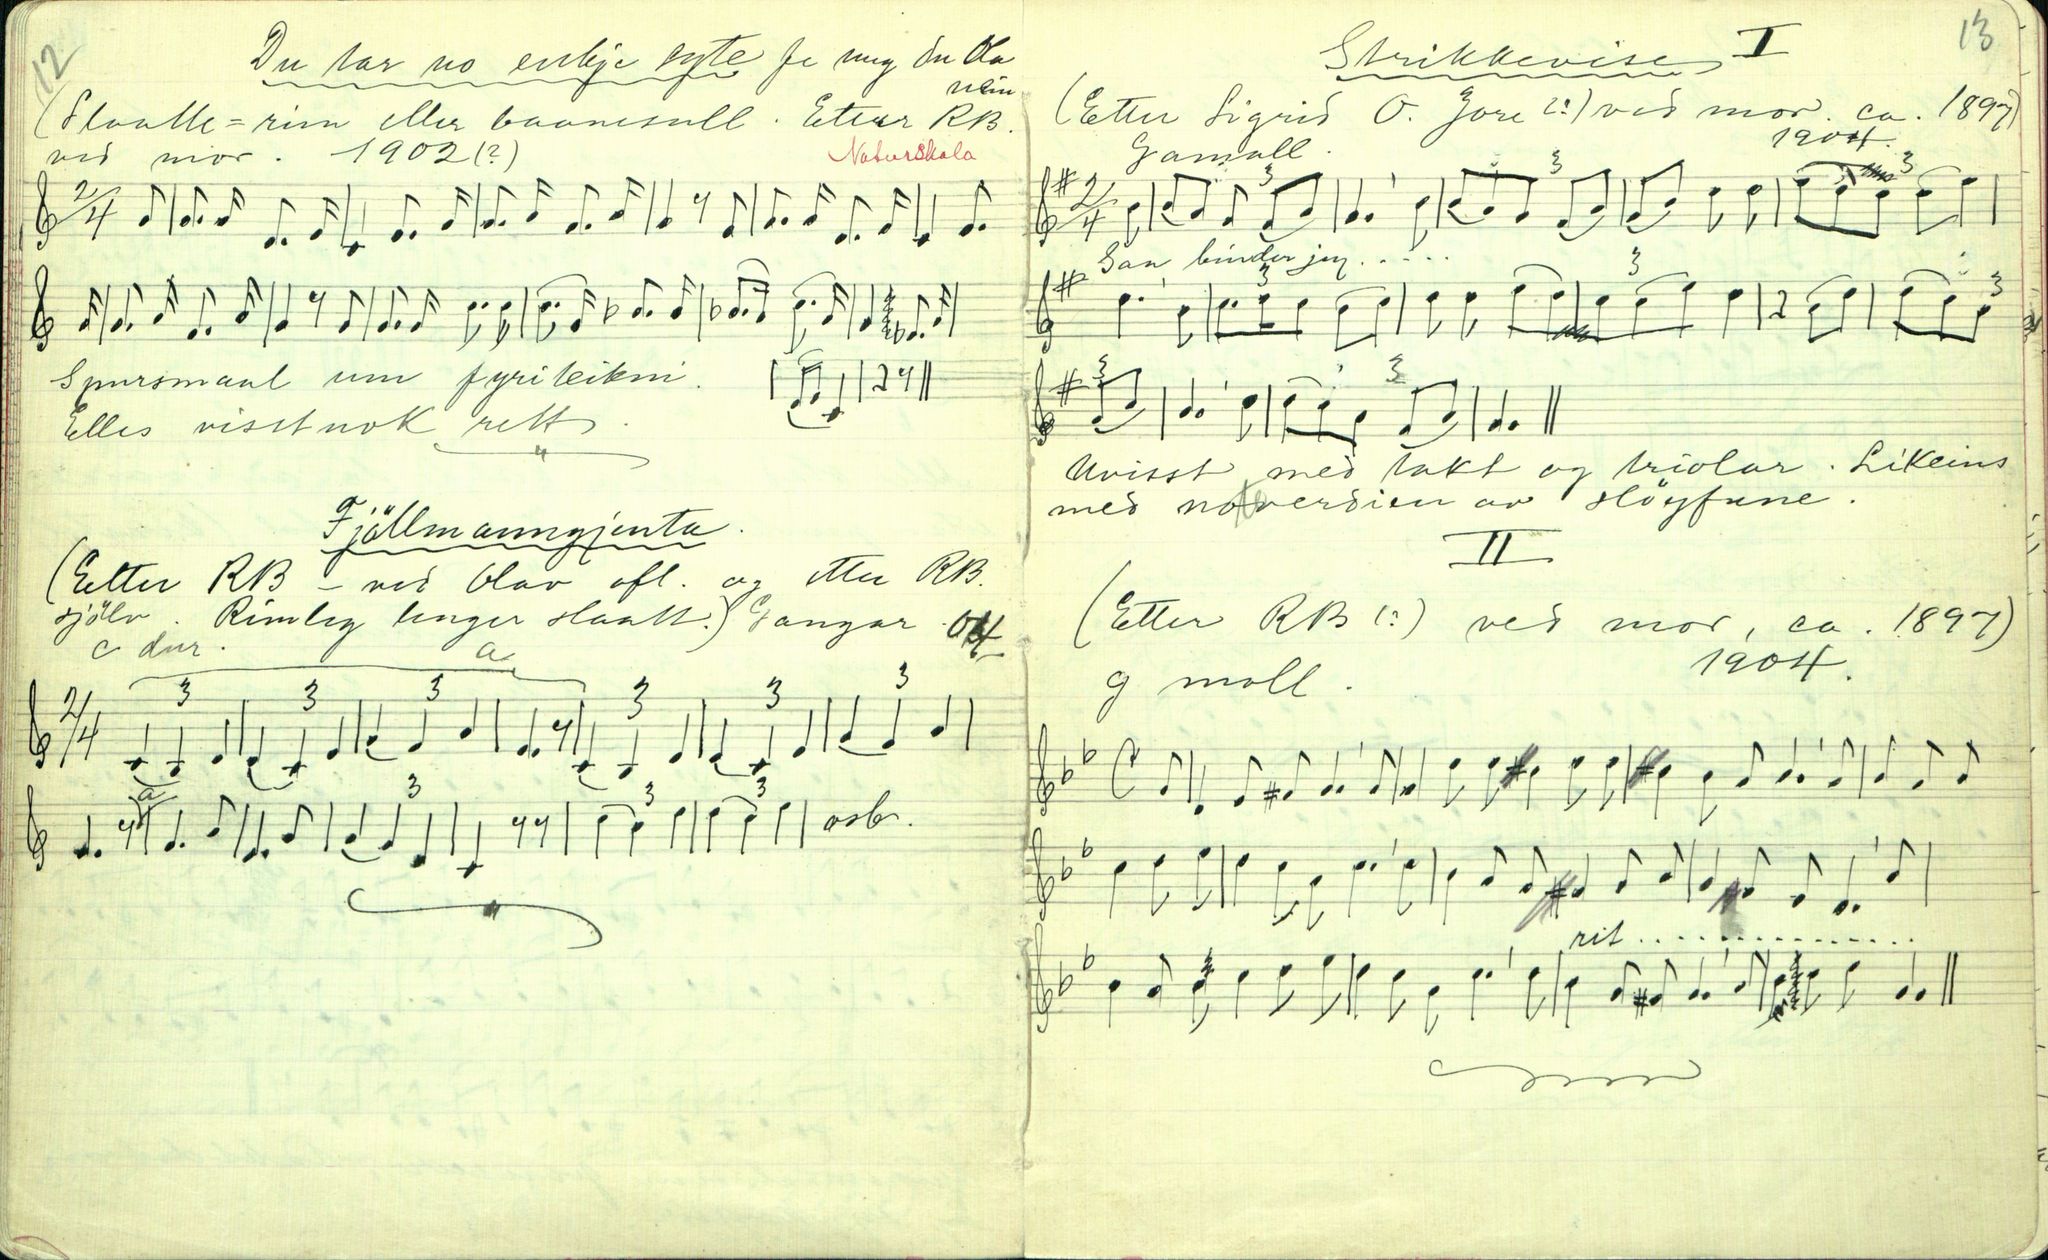 12
Du tar no enkje syte fe meg du Ola
mein
(Slaatte=rim eller baanesull. Etter RB.
ved mor. 1902(?)
Naturskala
2/4
Spursmaal um fyriteikni.
Elles visstnok rett.
Fjöllmanngjenta.
(Etter RB – ved Olav ofl. og etter RB.
sjölv. Rimleg lenger slaatt.) Gangar.
c dur.
a
3 3 3 3 3 3
2/4
a
3 3 3
osb.
13
Strikkevise I
(Etter Sigrid O. Jore (?) ved mor. ca. 1897)
1904.
Gamall.
3 3 3
2/4
San binder jeg.....
3 3 3
3 3
Uvisst med takt og triolar. Likeins
med noteverdien av slöyfune.
II
(Etter RB (?) ved mor, ca. 1897)
1904.
g moll.
rit..............